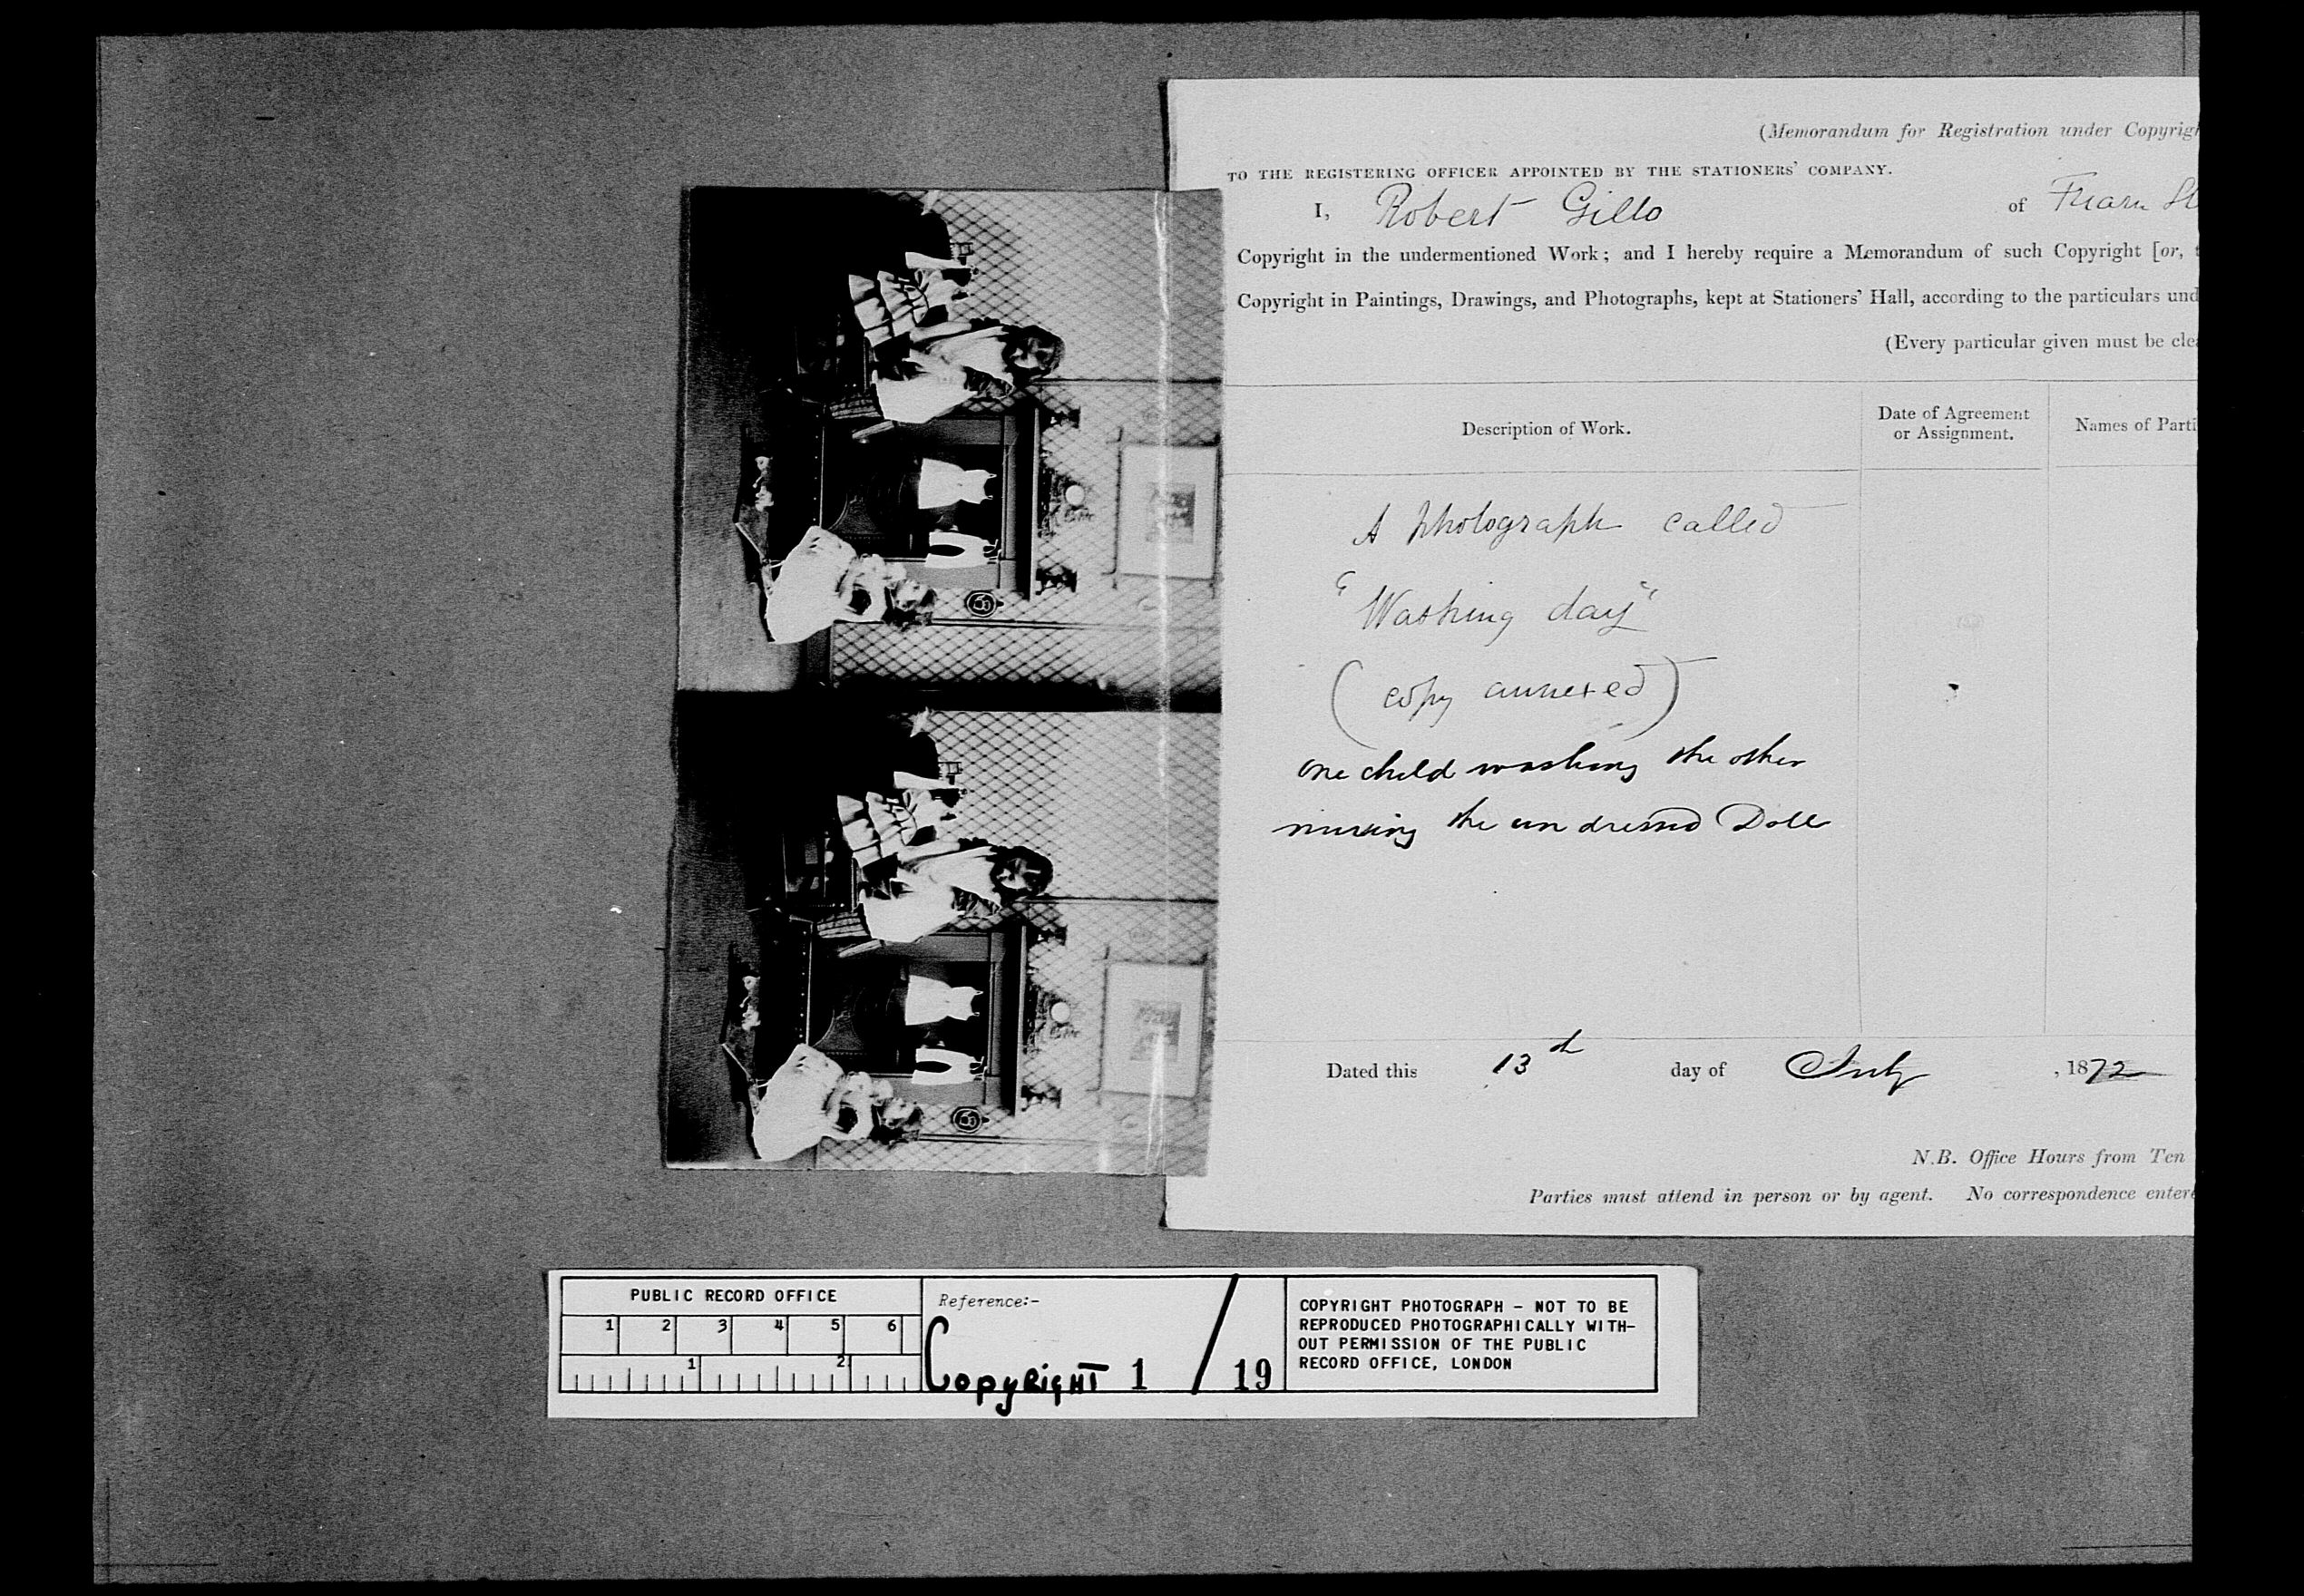 (Memorandum for Registration under Copyrigh
TO THE REGISTERING OFFICER APPOINTED BY THE STATIONERS' COMPANY.
I, Robert Gillo of
Copyright in the undermentioned Work; and I hereby require a Memorandum of such Copyright [or, t
Copyright in Paintings, Drawings, and Photographs, kept at Stationers' Hall, according to the particulars und
(Every particular given must be clea
Description of Work.
Date of Agreement
or Assignment.
Names of Parti
A photograph called
"Washing day"
(copy annexed)
one child washing the other
nursing the undressed Doll
Dated this 13th day of July, 1872
N.B. Office Hours from Ten
Parties must attend in person or by agent. No correspondence entere
PUBLIC RECORD OFFICE
1 2 3 4 5 6
1 2
Reference:-
COPYRIGHT 1 / 19
COPYRIGHT PHOTOGRAPH - NOT TO BE
REPRODUCED PHOTOGRAPHICALLY WITH-
OUT PERMISSION OF THE PUBLIC
RECORD OFFICE, LONDON